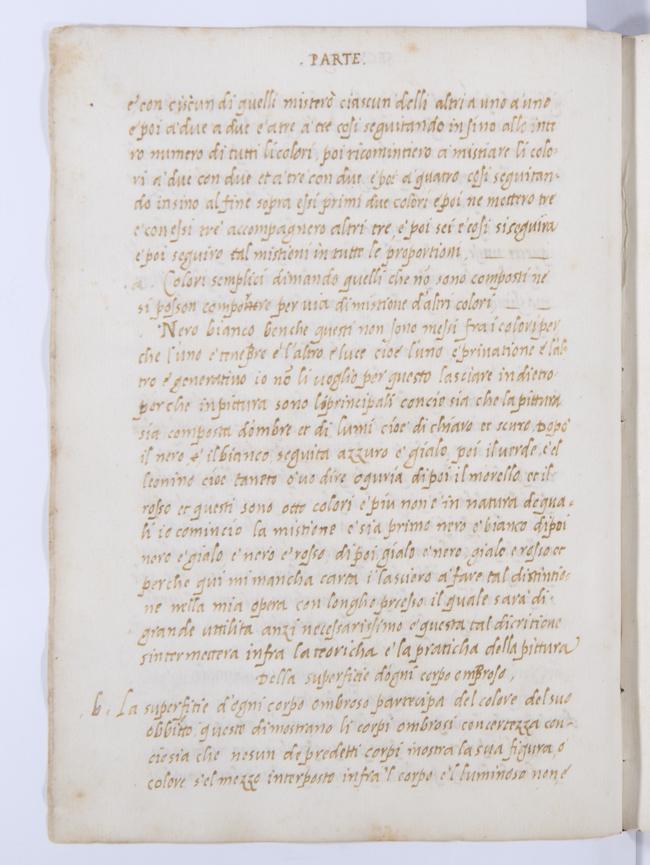 . PARTE.
e con ciscun di quelli misterò ciascun delli altri a uno a uno
e poi a due a due e a tre a tre cosi seguitando in sino allo inte
ro numero di tutti li colori, poi ricomintiero a mistiare li colo-
ri a due con due et a tre con due e poi a quatro cosi seguitan-
do in sino al fine sopra essi primi due colori e poi ne mettero tre
e con essi tre accompagnero altri tre, e poi sei e cosi si seguira
e poi seguiro tal mistioni in tutte le proportioni
a. Colori semplici dimando quelli che nō sono composti ne
si posson comporre per via di mistione d'altri colori
Nero bianco benche questi non sono messi fra i colori per
che l'uno e tenebre e l'altro e luce cioè l'uno e privatione e l'al-
tro e generativo io nō li voglio per questo lasciare in dietro
perche in pittura sono li principali concio sia che la pittura
sia composta d'ombre et di lumi cioe di chiaro et scuro. Dopo
il nero e il bianco seguita azzuro e gialo, poi il verde, e'l
leonino cioe taneto o vo dire oguria dipoi il morello, et il
rosso et questi sono otto colori e piu non e in natura de qua-
li io comincio la mistione e sia primo nero e bianco dipoi
nero e gialo e nero e rosso, dipoi gialo e nero, gialo e rosso et
perche qui mi mancha carta i lasciero a fare tal distintio-
ne nella mia opera con longho precesso il quale sara di
grande uttilita anzi necessarissimo e questa tal dicritione
s'intermettera infra la teoricha e la praticha della pittura
Della superfitie d'ogni corpo ombroso.
. b. La superfitie d'ogni corpo ombroso partecipa del colore del suo
obbitto, questo dimostrano li corpi ombrosi con certezza con-
ciosia che nesun de predetti corpi mostra la sua figura, o
colore s'el mezzo interposto infra'l corpo e'l luminoso non e